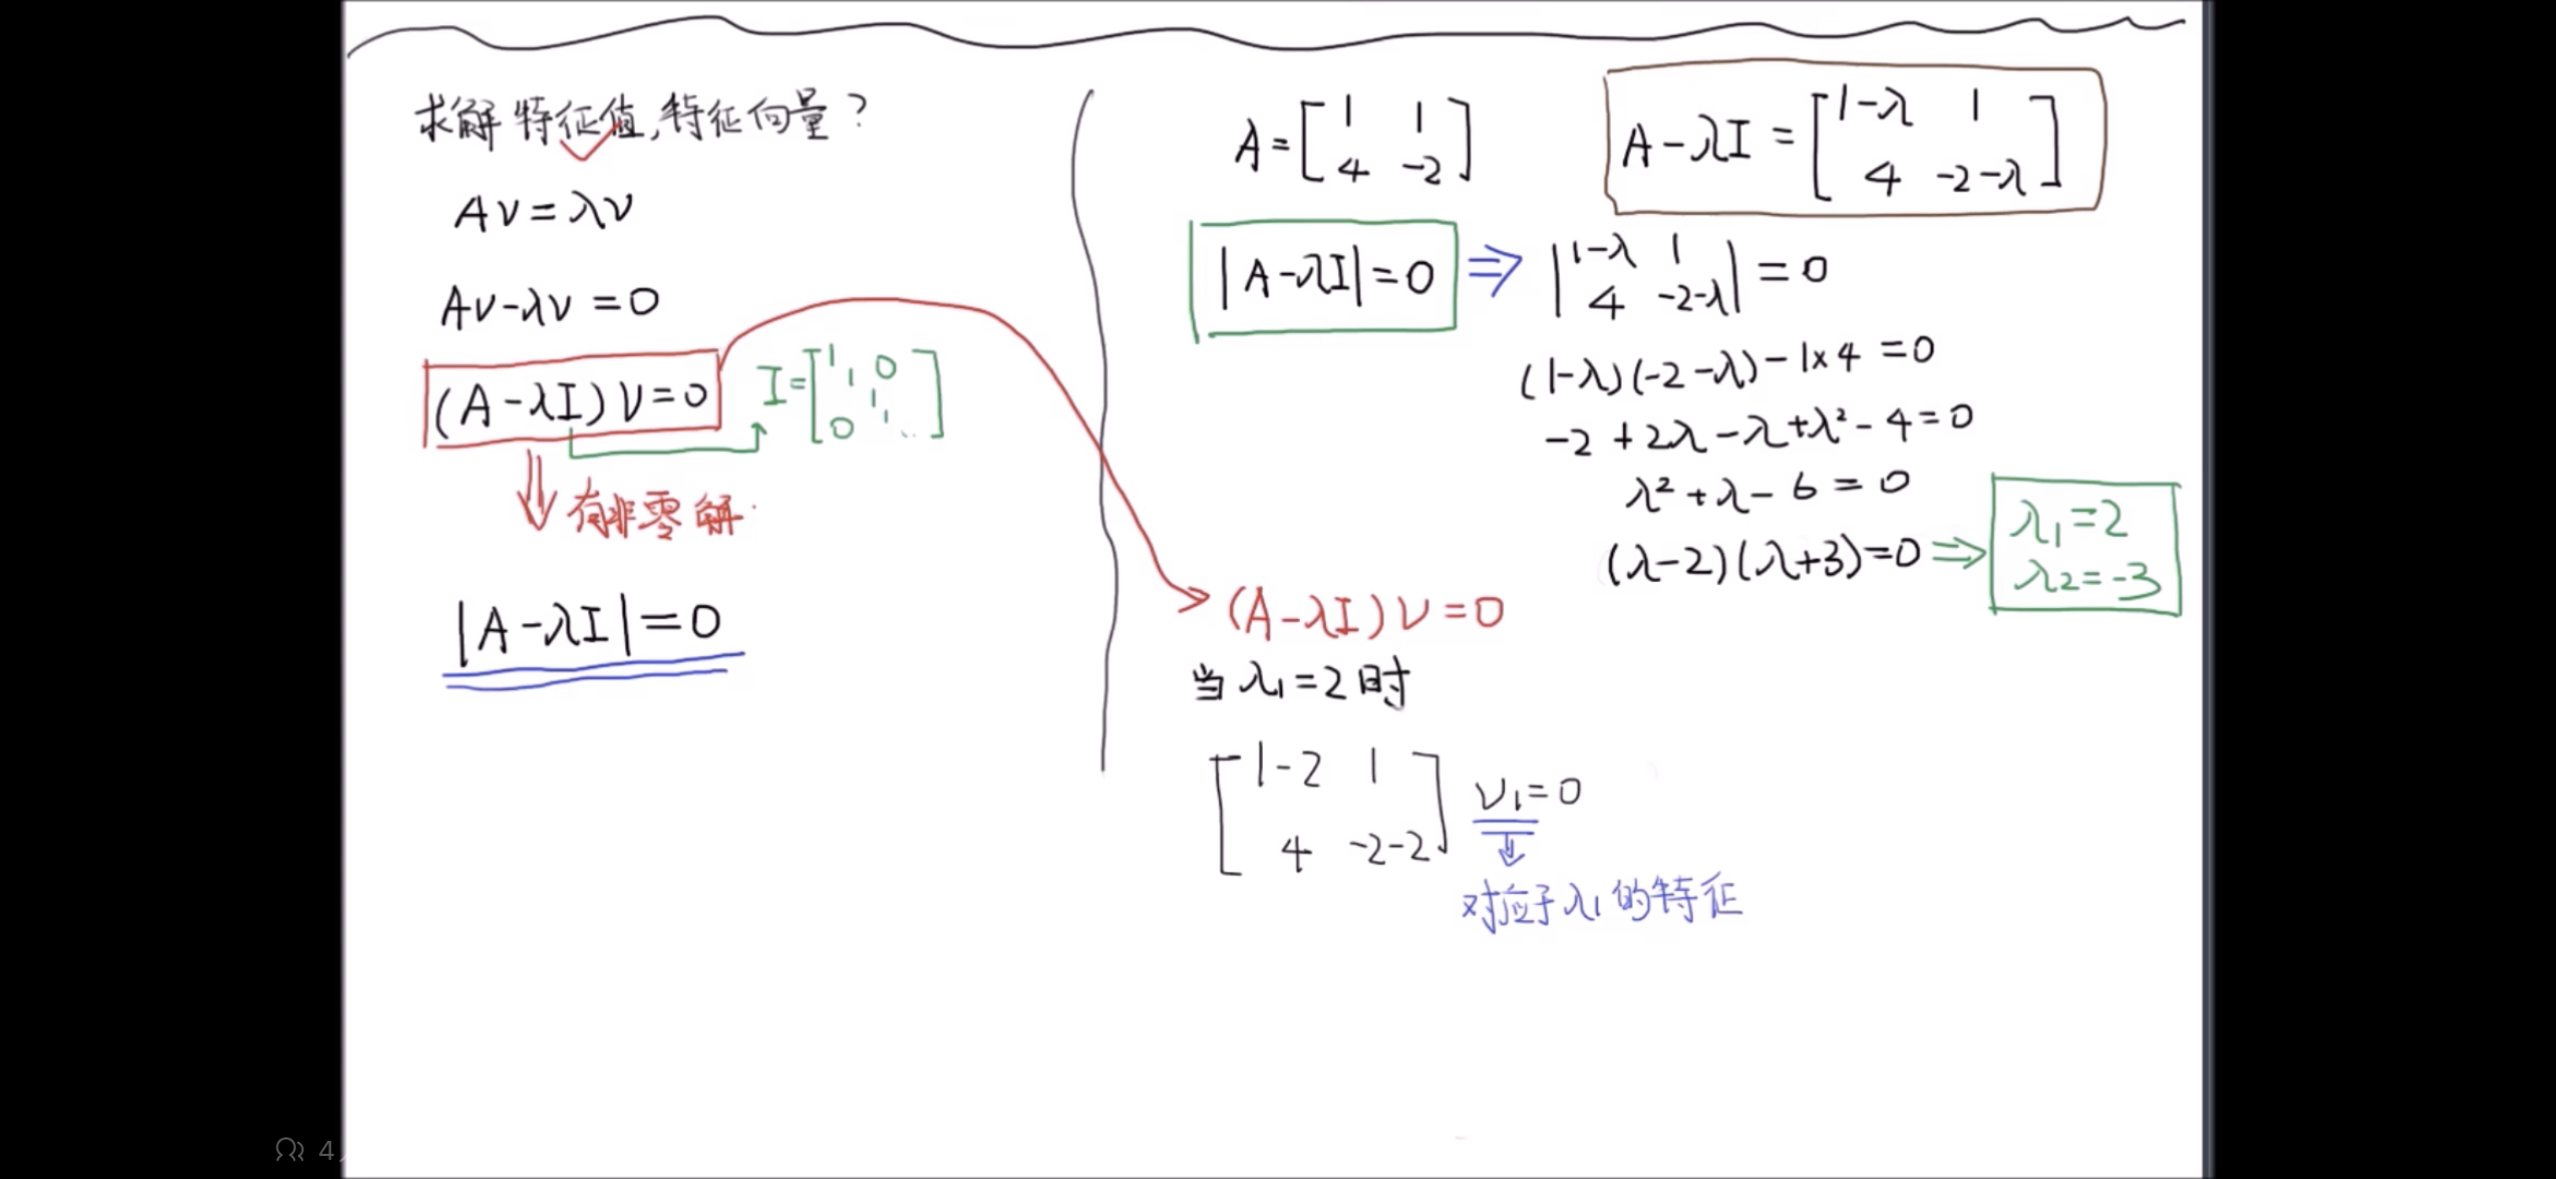 求解特征值,特征向量?
Av=λv
Av-λv=0
(A-λI)v=0
I=[1 1 0 1 0 1 ..]
有非零解.
|A-λI|=0
A=[1 1
4 -2]
A-λI=[1-λ 1
4 -2-λ]
|A-λI|=0 ⇒ |1-λ 1
4 -2-λ|=0
(1-λ)(-2-λ)-1×4=0
-2+2λ-λ+λ²-4=0
λ²+λ-6=0
(λ-2)(λ+3)=0 ⇒ λ₁=2
λ₂=-3
(A-λI)v=0
当λ₁=2时
[1-2 1
4 -2-2] v₁=0
对应于λ₁的特征
4